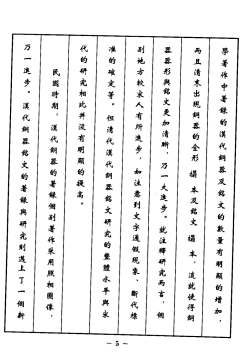 學著作中著錄的漢代銅器及銘文的數量有明顯的增加，
而且清末出現銅器的全形搨本及銘文搨本，這就使得銅
器器形與銘文更加清晰，乃一大進步。就注釋研究而言，個
別地方較宋人有所進步，如注意到文字通假現象、斷代標
準的確定等。但清代漢代銅器銘文研究的整體水平與宋
代的研究相比并沒有明顯的提高。
民國時期，漢代銅器的著錄個別著作采用照相圖像，
乃一進步。漢代銅器銘文的著錄與研究則邁上了一個新
- 5 -